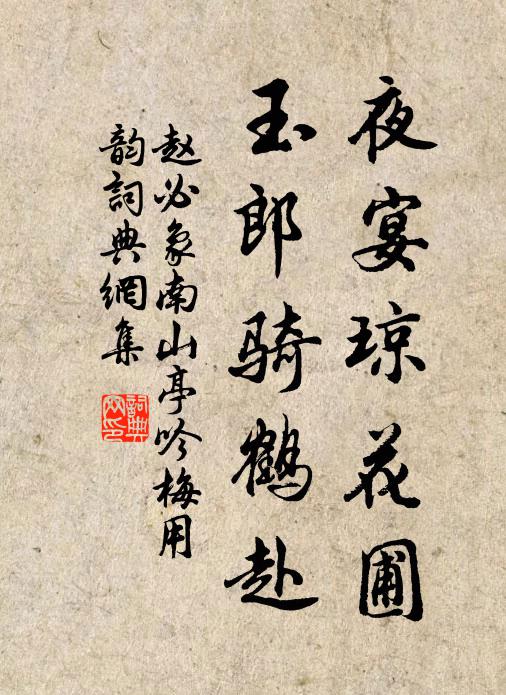 夜宴琼花圃
玉郎骑鹤赴
赵必象南山亭吟梅用
韵詞典網集
詞典
网印